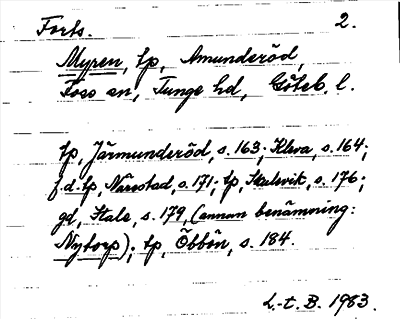 Forts. 2.
Myren, tp, Amunderöd,
Foss sn, Tunge hd, Göteb. l.
tp, Järmunderöd, s. 163; Kleva, s. 164;
f.d. tp, Navstad, s. 171; tp, Stalsvik, s. 176;
gd, Stale, s. 179, (annan benämning:
Nytorp); tp, Öbbön, s. 184.
L.-t. B. 1983.